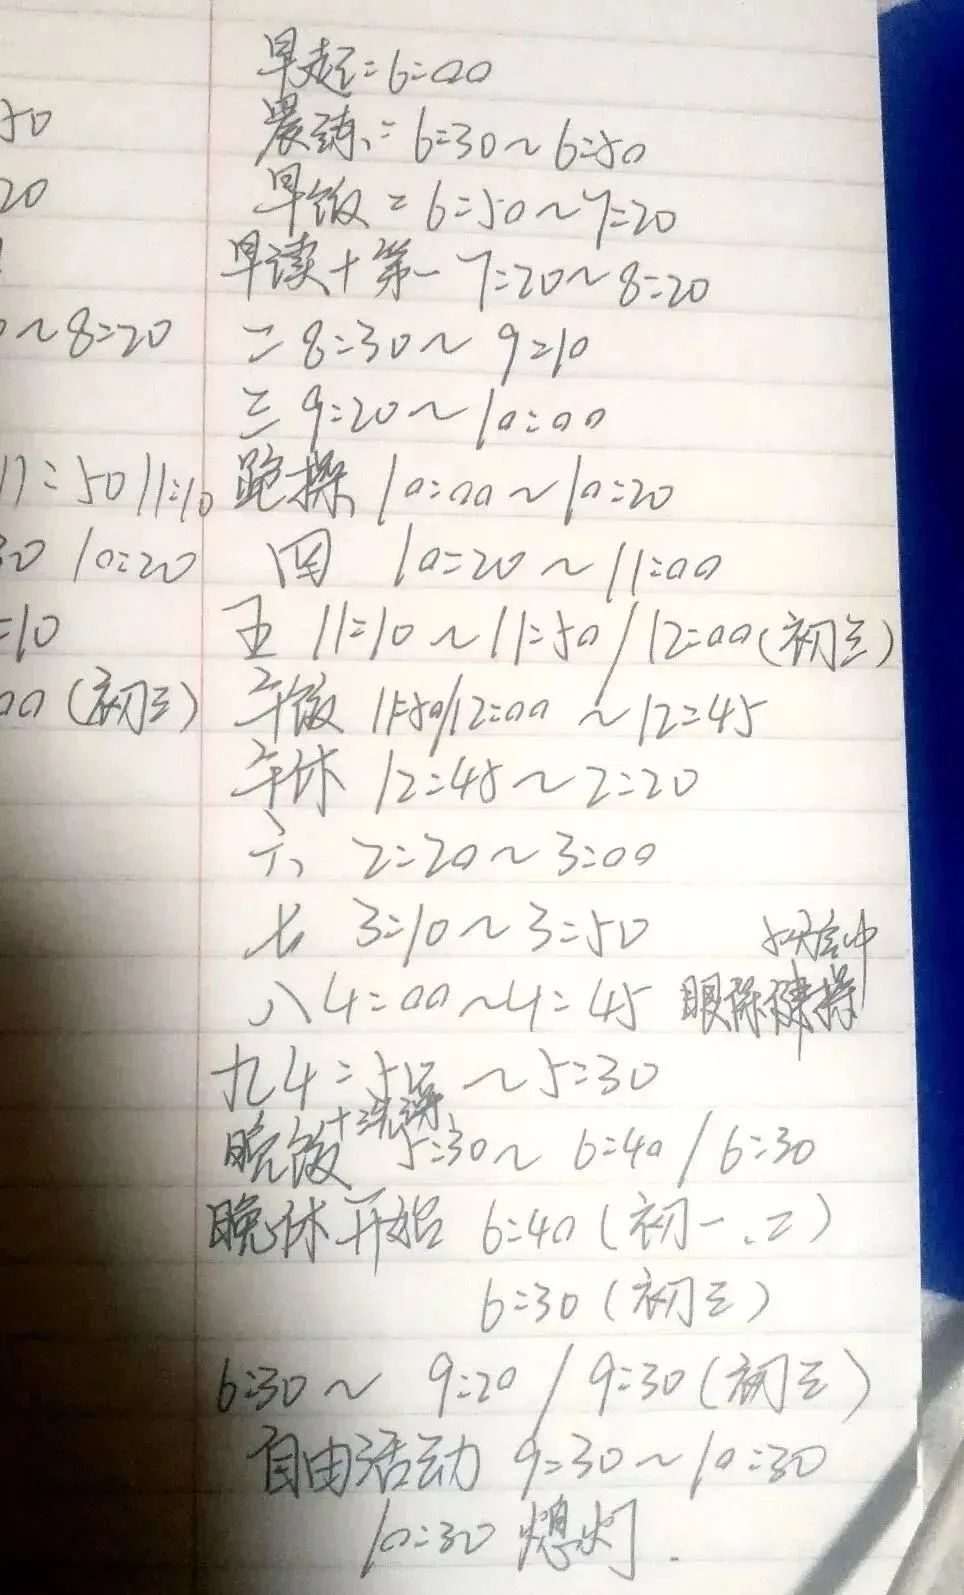 早起：6：00
50 晨练：6：30～6：50
20 早饭：6：50～7：20
早读+第一 7：20～8：20
～8：20 二 8：30～9：10
三 9：20～10：00
11：50 11：10 跑操 10：00～10：20
30 10：20 四 10：20～11：00
：10 五 11：10～11：50/12：00（初三）
00（初三） 午饭 11：50/12：00～12：45
午休 12：45～2：20
六 2：20～3：00
七 3：10～3：50
5分钟
八 4：00～4：45 眼保健操
九 4：50～5：30
+洗漱
晚饭 5：30～6：40/6：30
晚休开始 6：40（初一、二）
6：30（初三）
6：30～9：20/9：30（初三）
自由活动 9：30～10：30
10：30 熄灯.